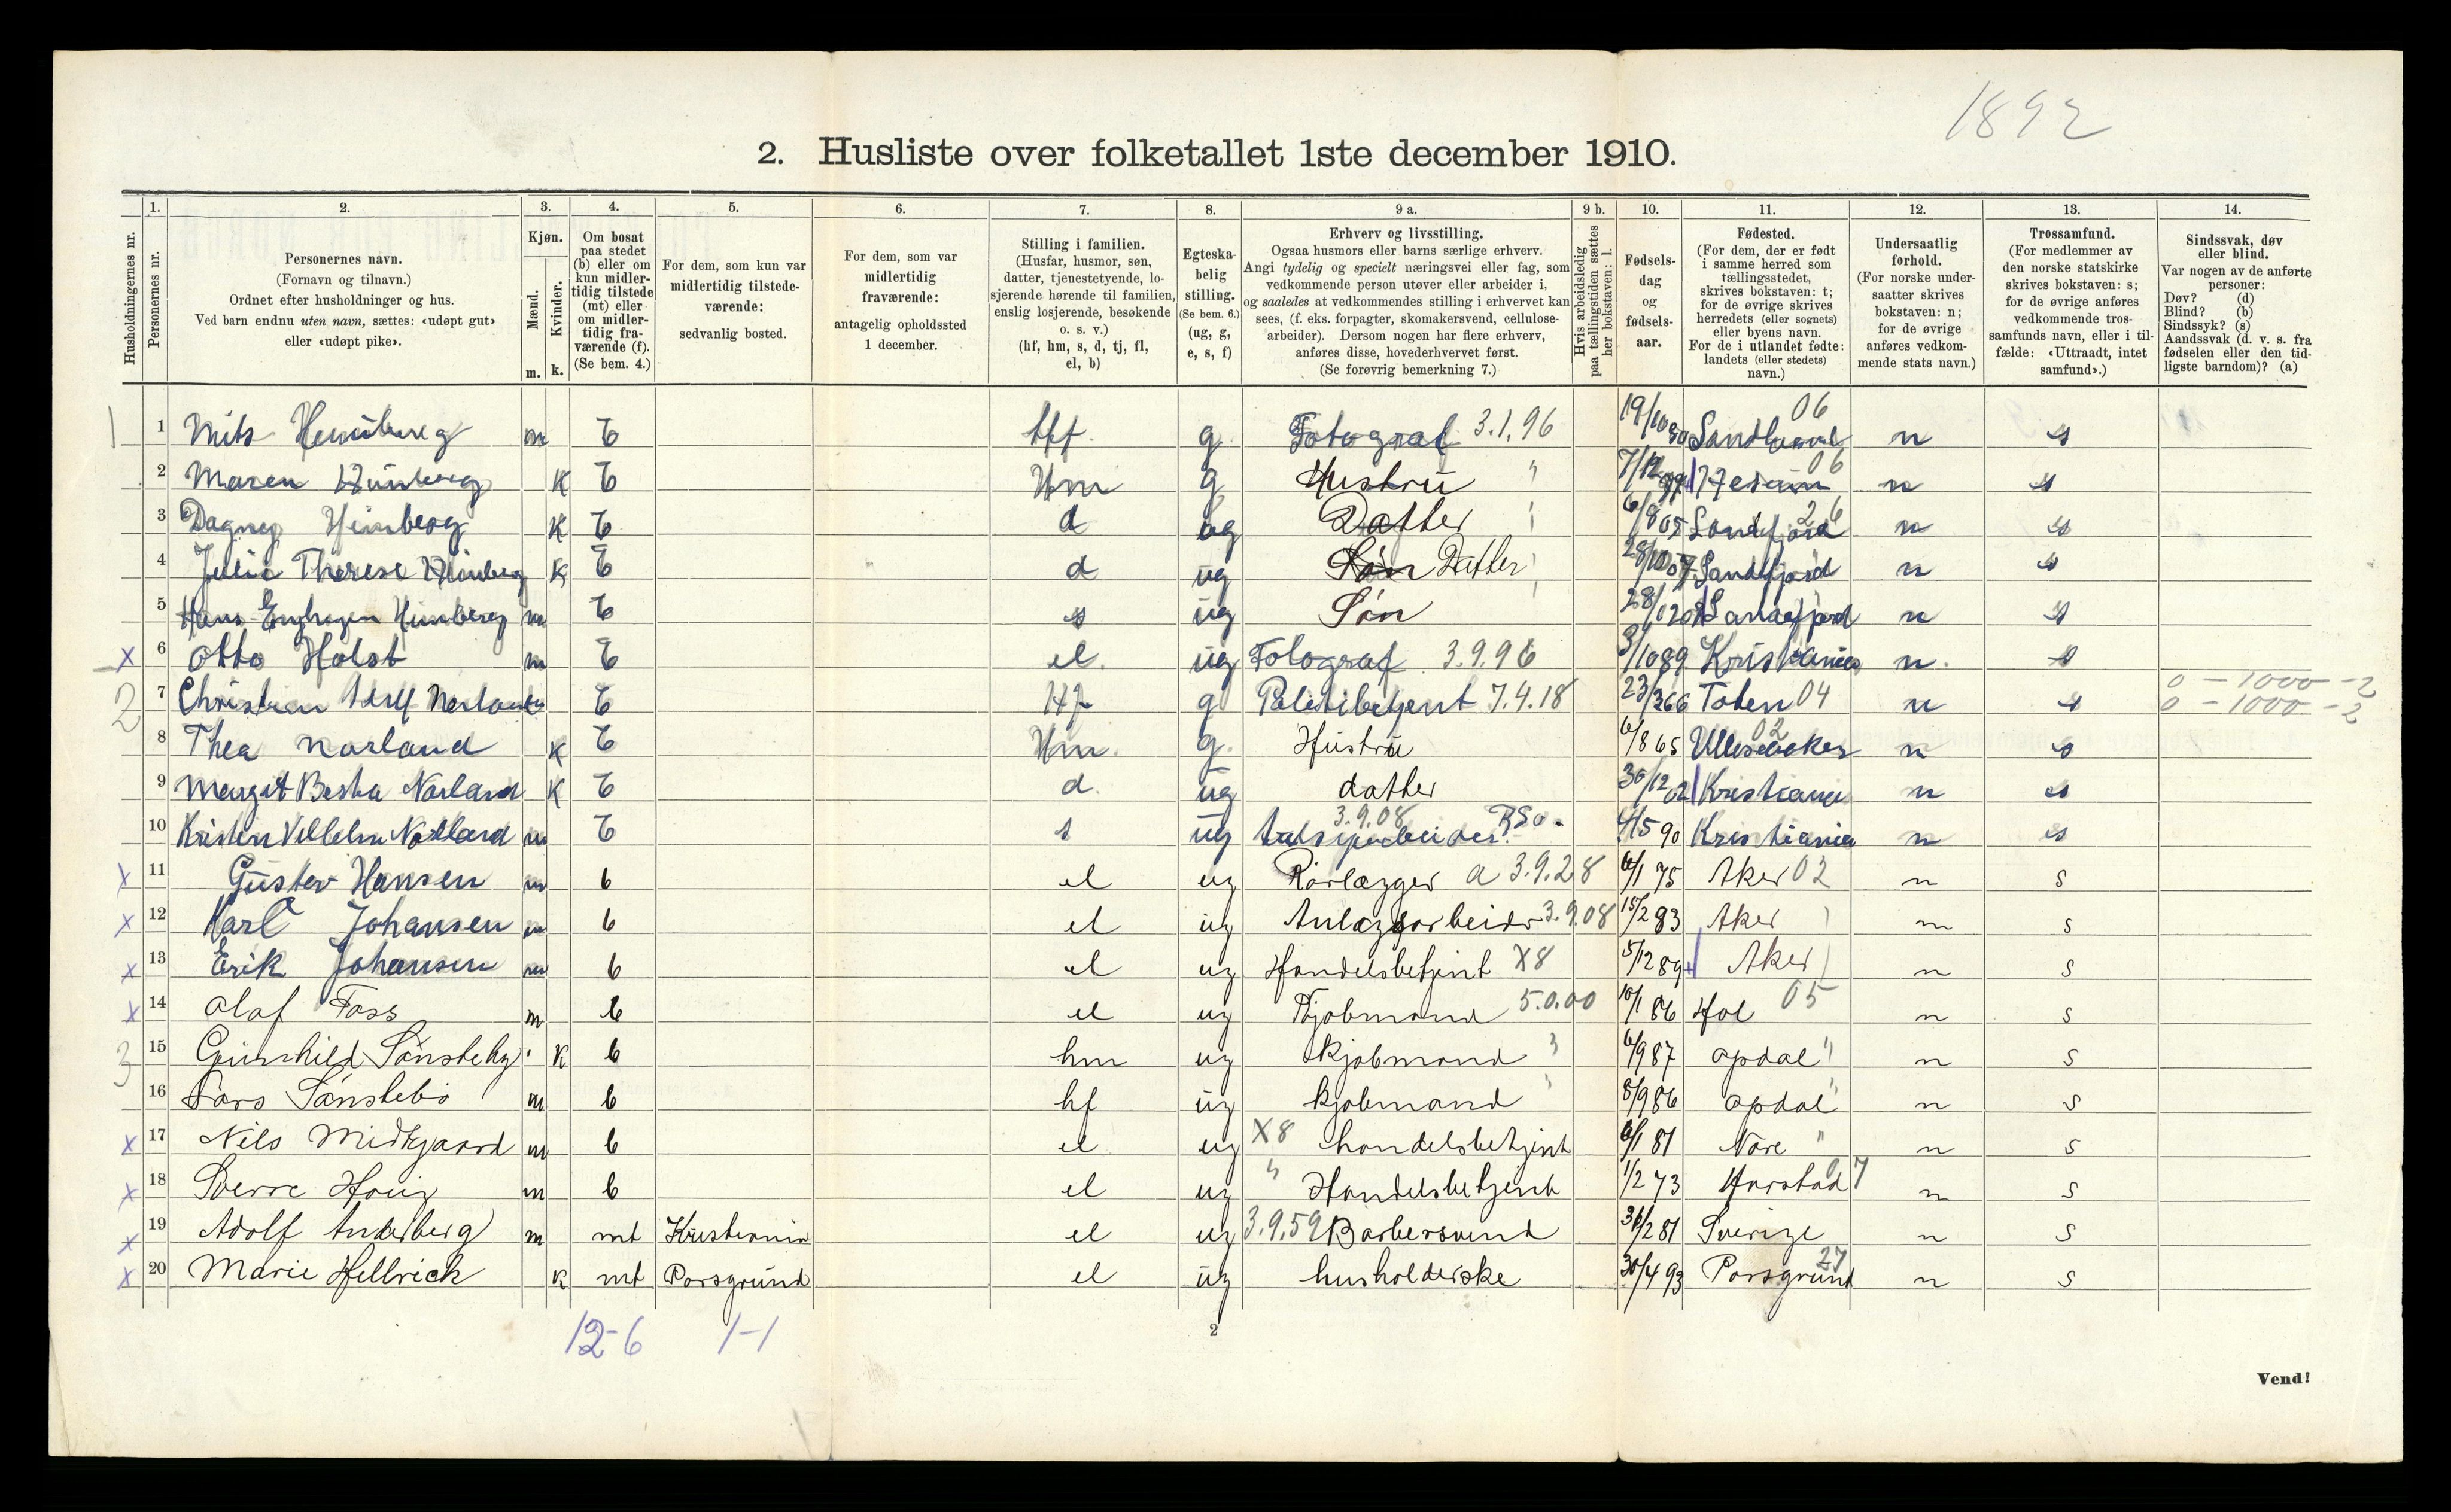 1892
2. Husliste over folketallet 1ste december 1910.
1. 2. 3. 4. 5. 6. 7. 8. 9 a. 9 b. 10. 11. 12. 13. 14.
Husholdningernes nr.
Personernes nr.
Personernes navn.
(Fornavn og tilnavn.)
Ordnet efter husholdninger og hus.
Ved barn endnu uten navn, sættes: «udøpt gut»
eller «udøpt pike».
Kjøn.
Mænd.
Kvinder.
m. k.
Om bosat
paa stedet
(b) eller om
kun midler-
tidig tilstede
(mt) eller
om midler-
tidig fra-
værende (f).
(Se bem. 4.)
For dem, som kun var
midlertidig tilstede-
værende:
sedvanlig bosted.
For dem, som var
midlertidig
fraværende:
antagelig opholdssted
1 december.
Stilling i familien.
(Husfar, husmor, søn,
datter, tjenestetyende, lo-
sjerende hørende til familien,
enslig losjerende, besøkende
o. s. v.)
(hf, hm, s, d, tj, fl,
el, b)
Egteska-
belig
stilling.
(Se bem. 6.)
(ug, g,
e, s, f)
Erhverv og livsstilling.
Ogsaa husmors eller barns særlige erhverv.
Angi tydelig og specielt næringsvei eller fag, som
vedkommende person utøver eller arbeider i,
og saaledes at vedkommendes stilling i erhvervet kan
sees, (f. eks. forpagter, skomakersvend, cellulose-
arbeider). Dersom nogen har flere erhverv,
anføres disse, hovederhvervet først.
(Se forøvrig bemerkning 7.)
Hvis arbeidsledig
paa tællingstiden sættes
her bokstaven: l.
Fødsels-
dag
og
fødsels-
aar.
Fødested.
(For dem, der er født
i samme herred som
tællingsstedet,
skrives bokstaven: t;
for de øvrige skrives
herredets (eller sognets)
eller byens navn.
For de i utlandet fødte:
landets (eller stedets)
navn.)
Undersaatlig
forhold.
(For norske under-
saatter skrives
bokstaven: n;
for de øvrige
anføres vedkom-
mende stats navn.)
Trossamfund.
(For medlemmer av
den norske statskirke
skrives bokstaven: s;
for de øvrige anføres
vedkommende tros-
samfunds navn, eller i til-
fælde: «Uttraadt, intet
samfund».)
Sindssvak, døv
eller blind.
Var nogen av de anførte
personer:
Døv? (d)
Blind? (b)
Sindssyk? (s)
Aandssvak (d. v. s. fra
fødselen eller den tid-
ligste barndom)? (a)
1 1 m b Hf. g Fotograf 3.1.96 19/10 80 06 n s
2 Maren K b Hm g Hustru " 7/12 06 n s
3 Dagny Heimberg K b d ug Datter 6/8 05 Sandefjord 26 n s
4 Julie Therese K b d ug Søn Datter 28/10 07 Sandefjord n s
5 Hans m b s ug Søn Sandefjord n s
x 6 Otto Holst m b el. ug Fotograf 3.9.96 3/10 89 Kristiania n. s
2 7 Christian b Hf g Politibetjent 7.4.18 23/3 66 Toten 04 n s 0 - 1000 - 2
0 - 1000 - 2
8 Thea Norland K b Hm. g. Hustru 6/8 65 Ullensaker 02 n s
9 Margit Norland K b d. ug datter 30/12 02 Kristiania n s
10 Kristen Vilhelm m b s ug 3.9.08 4/5 90 Kristiania n s
x 11 Gustav Hansen m b el ug Rørlægger a 3.9.28 6/1 75 Aker 02 n s
x 12 Karl Johansen m b el ug Anlægsarbeider 3.9.08 15/2 83 Aker n s
x 13 Erik Johansen m b el ug Handelsbetjent X8 5/12 89 Aker n s
x 14 Olaf Foss m b el ug Kjøbmand 5.0.00 10/1 86 Hol 05 n s
3 15 Gunhild Sønsteby K b hm ug kjøbmand " 6/9 87 opdal " n s
16 Lars Sønstebø m b hf ug kjøbmand " 8/9 86 opdal " n s
x 17 Nils Midtgaard m b el ug X8 handelsbetjent 6/1 81 Nore " n s
x 18 Sverre m b el ug " Handelsbetjent 1/2 73 Harstad 07 n s
x 19 Adolf Anderberg m mt Kristiania el ug 3.9.59 Barbersvend 31/2 81 Sverige n s
x 20 Marie Hellrick K mt Porsgrund el ug husholderske 30/4 93 Porsgrund 27 n s
12-6 1-1
2
Vend!